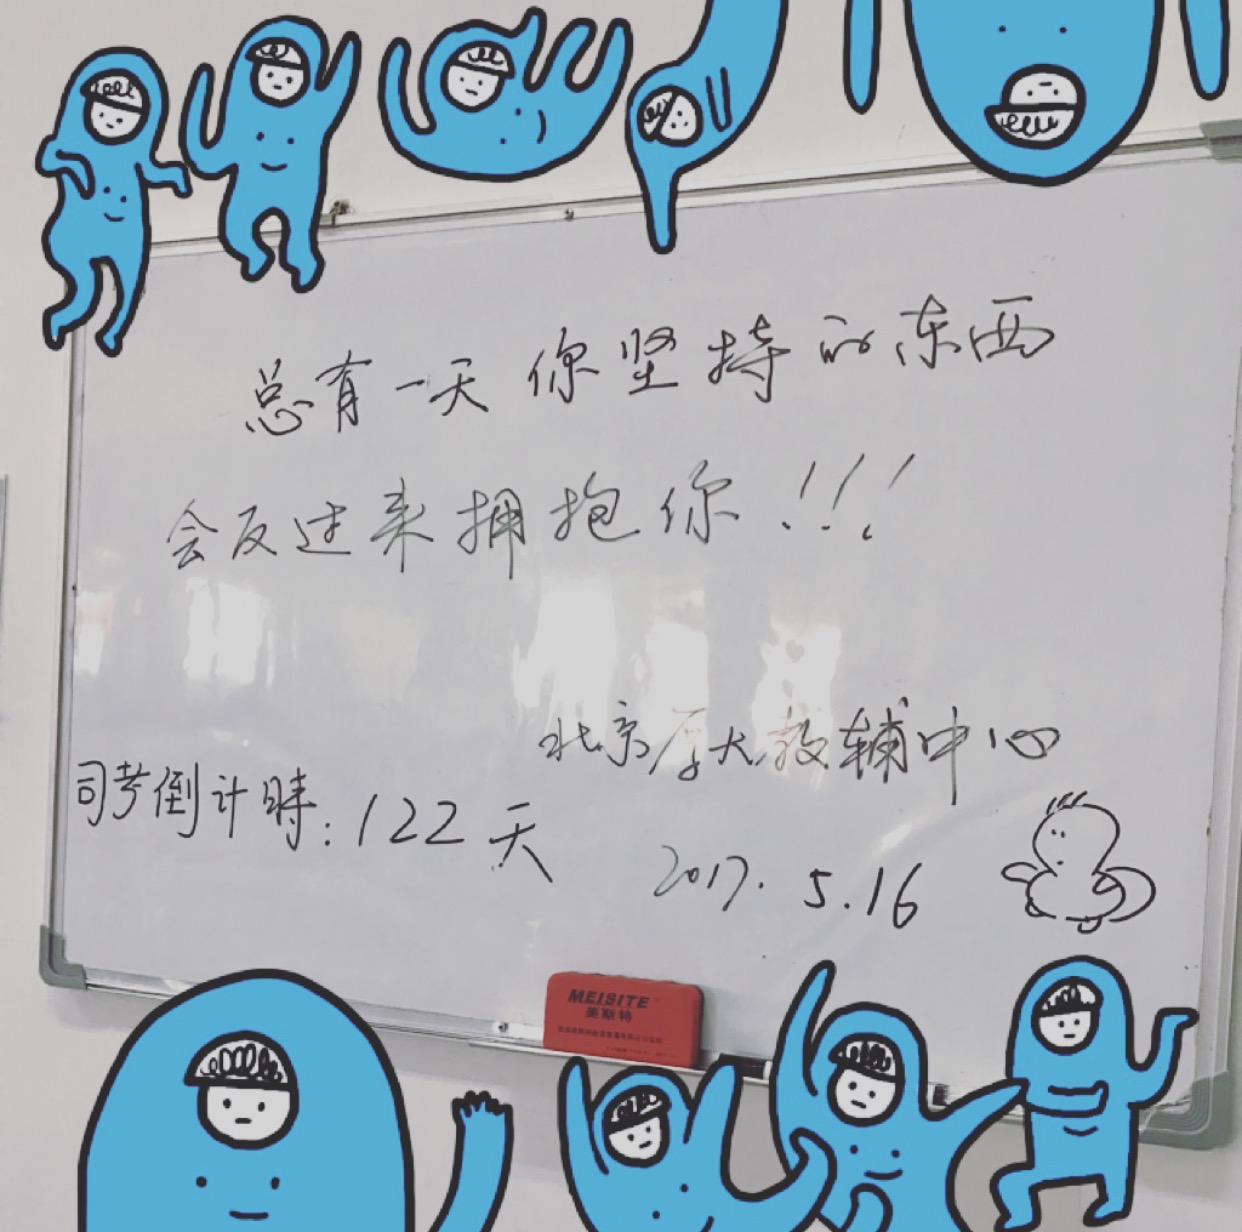 总有一天你坚持的东西
会反过来拥抱你!!!
北京厚大教辅中心
司考倒计时:122天
2017.5.16
MEISITE
美斯特